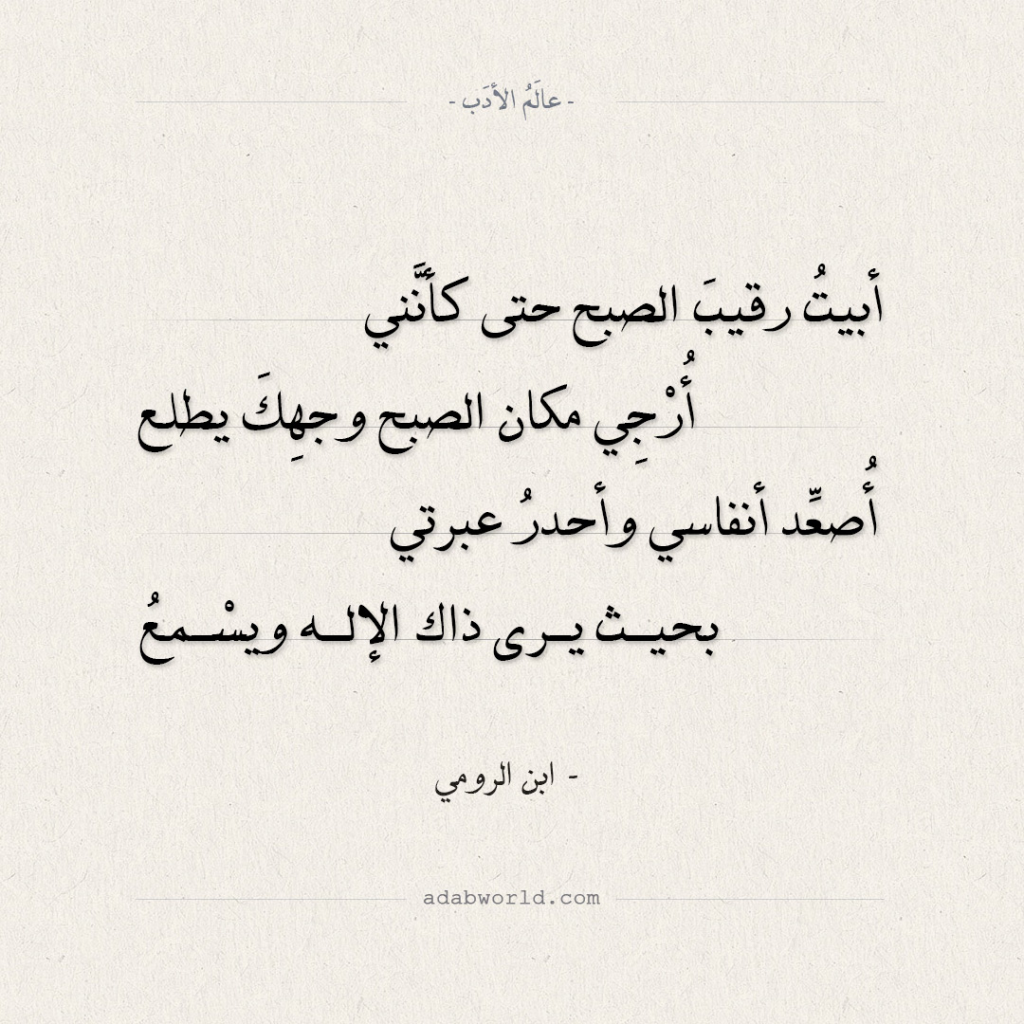 - عالَمُ الأدَب -
أبيتُ رقيبَ الصبح حتى كأنَّني
أُرْجِي مكان الصبح وجهِكَ يطلع
أُصعِّد أنفاسي وأحدرُ عبرتي
بحيــث يــرى ذاك الإلــه ويسْــمعُ
- ابن الرومي
adabworld.com